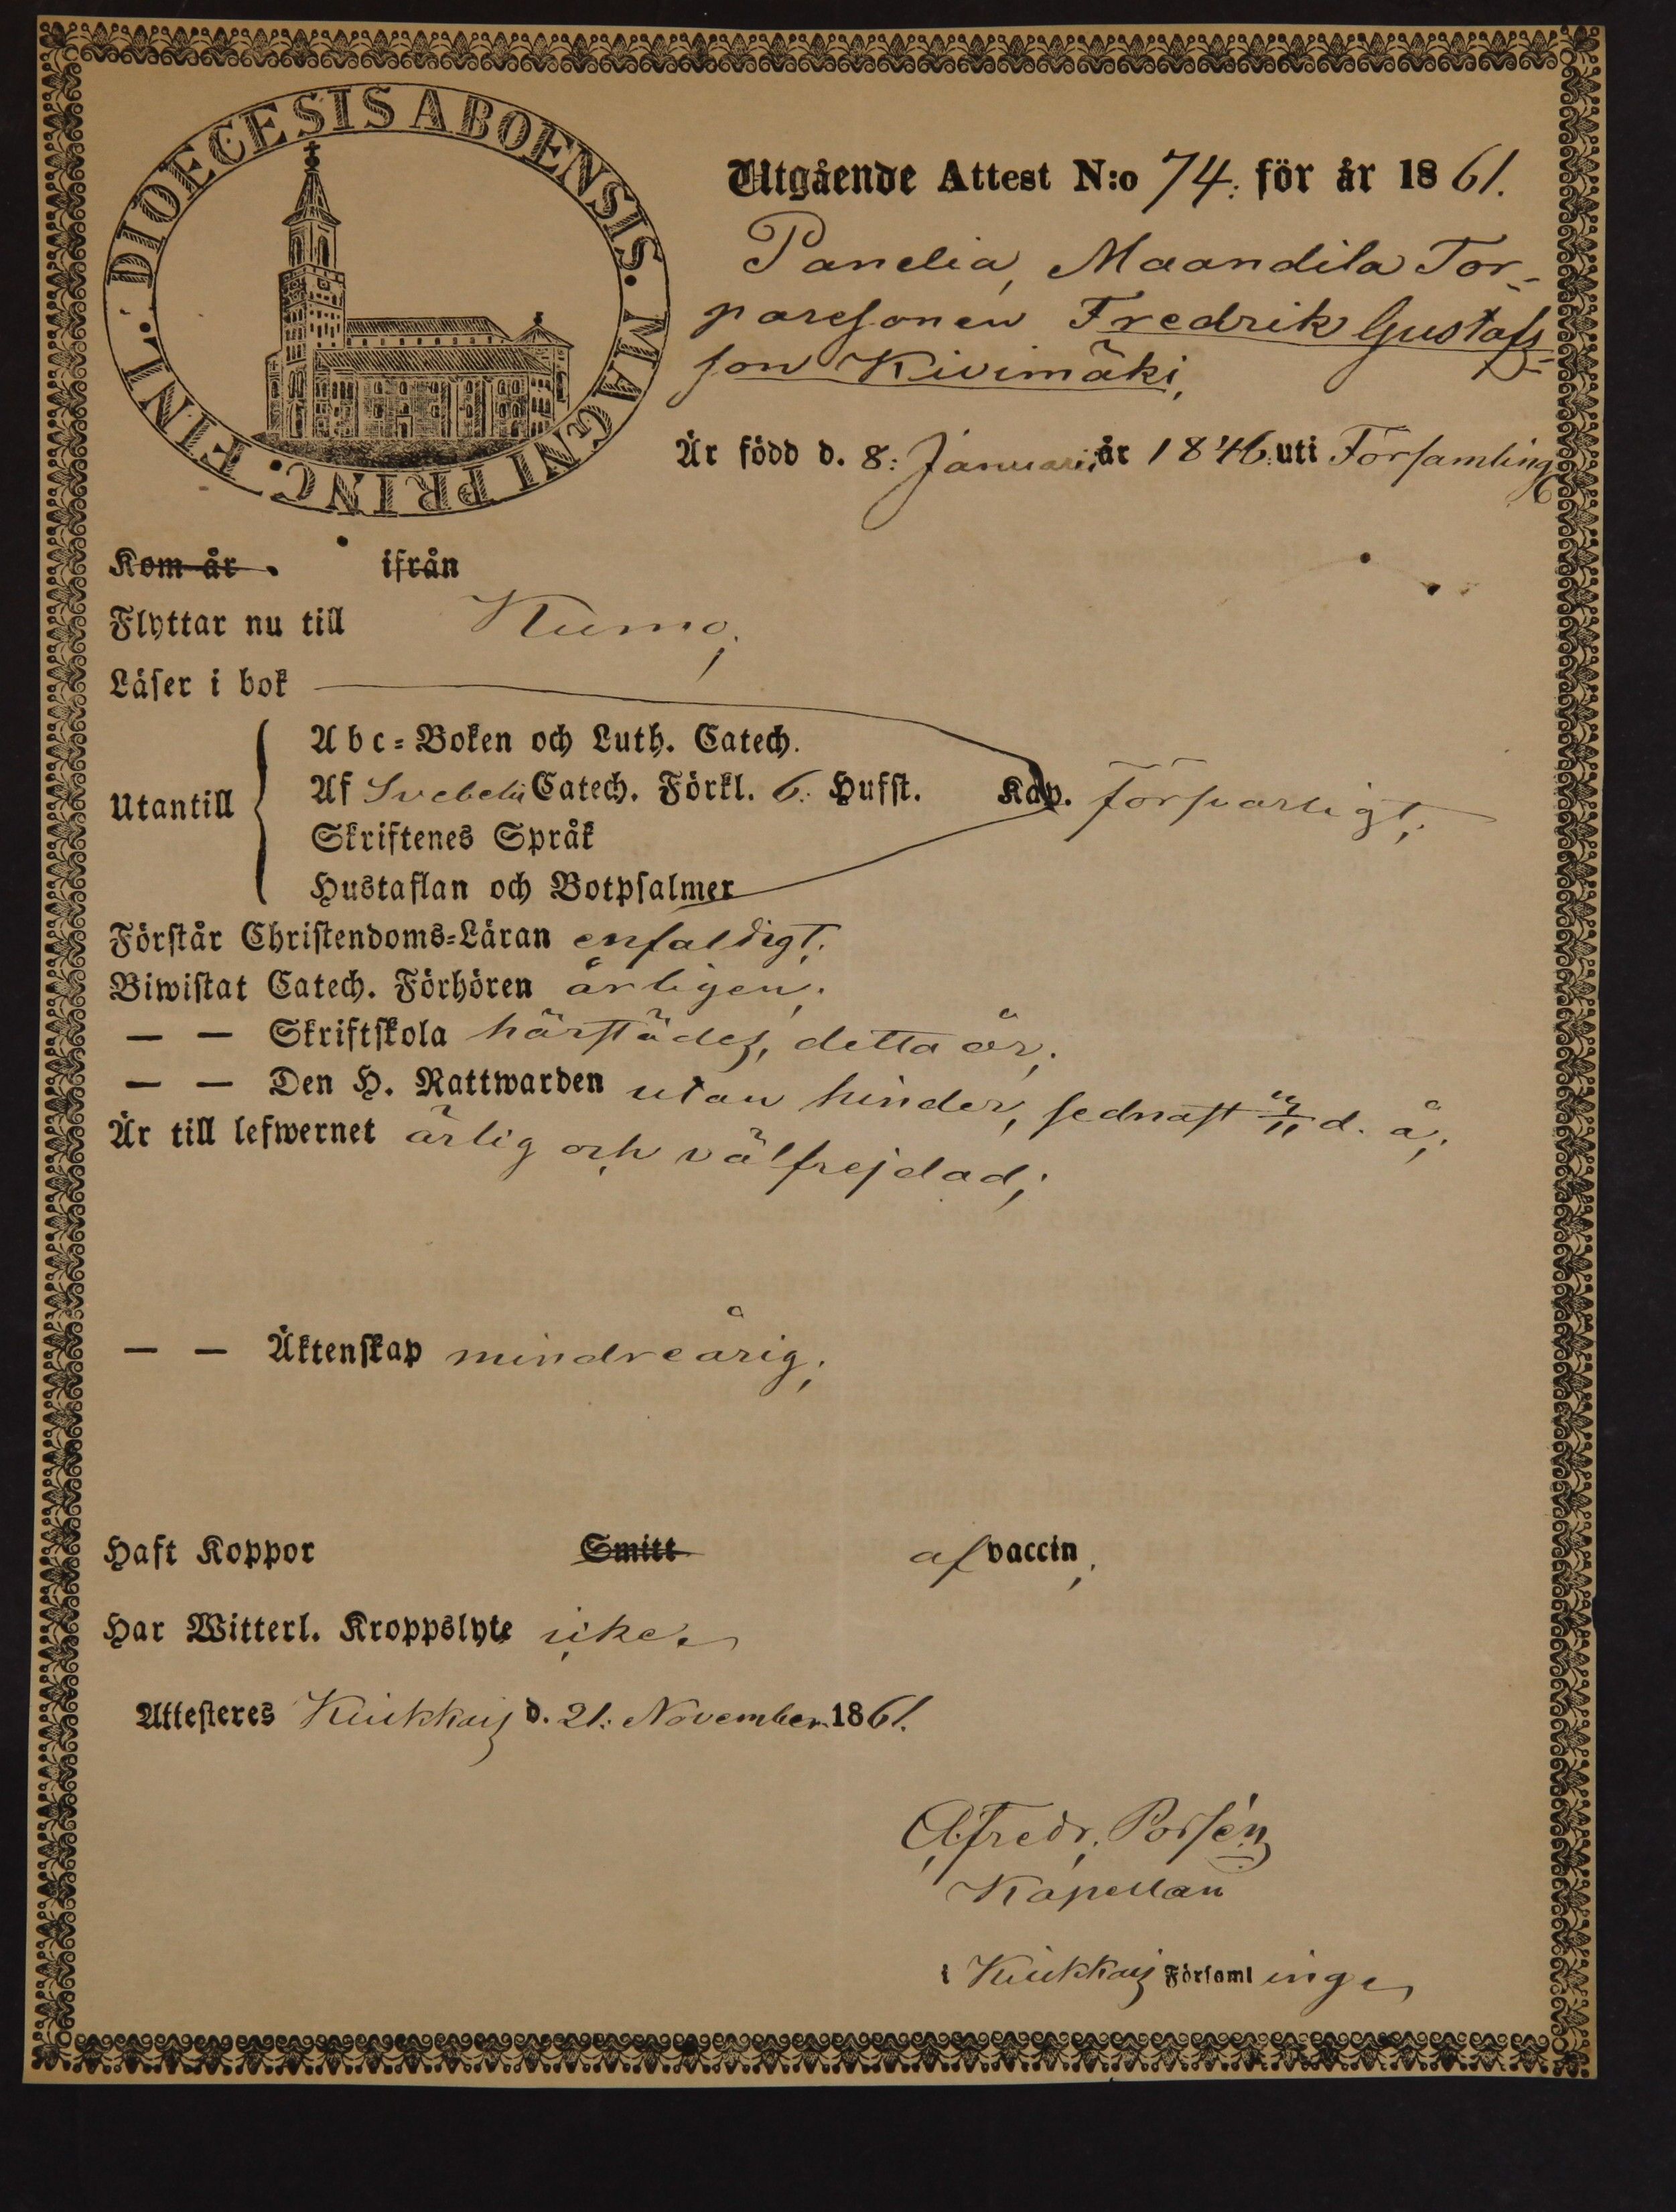 DIOECESIS ABOENSIS. MAGNI PRINC. FINL.
Utgående Attest N:o 74. för år 1861.
Panelia, Maandila Tor-
paresonen Fredrik Gustafs-
son Kivimäki,
Är född d. 8: Januarii år 1846. uti Församling
Kom år ifrån
Flyttar nu till Kumo;
Läser i bok
Utantill
Abc-Boken och Luth. Catech.
Af Svebelii Catech. Förkl. 6. Hufst. Kap. försvarligt;
Skriftenes Språk
Hustaflan och Botpsalmer
Förstår Christendoms-Läran enfaldigt;
Biwistat Catech. Förhören årligen;
— — Skriftskola härstädes, detta år;
— — Den H. Nattwarden utan hinder, sednast d. å;
Är till lefwernet ärlig och välfrejdad;
— — Äktenskap mindreårig;
Haft Koppor Smitt af vaccin;
Har Witterl. Kroppslyte icke.
Attesteres Kiukkais d. 21. November 1861.
Fredr. Porsén
Kapellan
i Kiukkais Församlinge